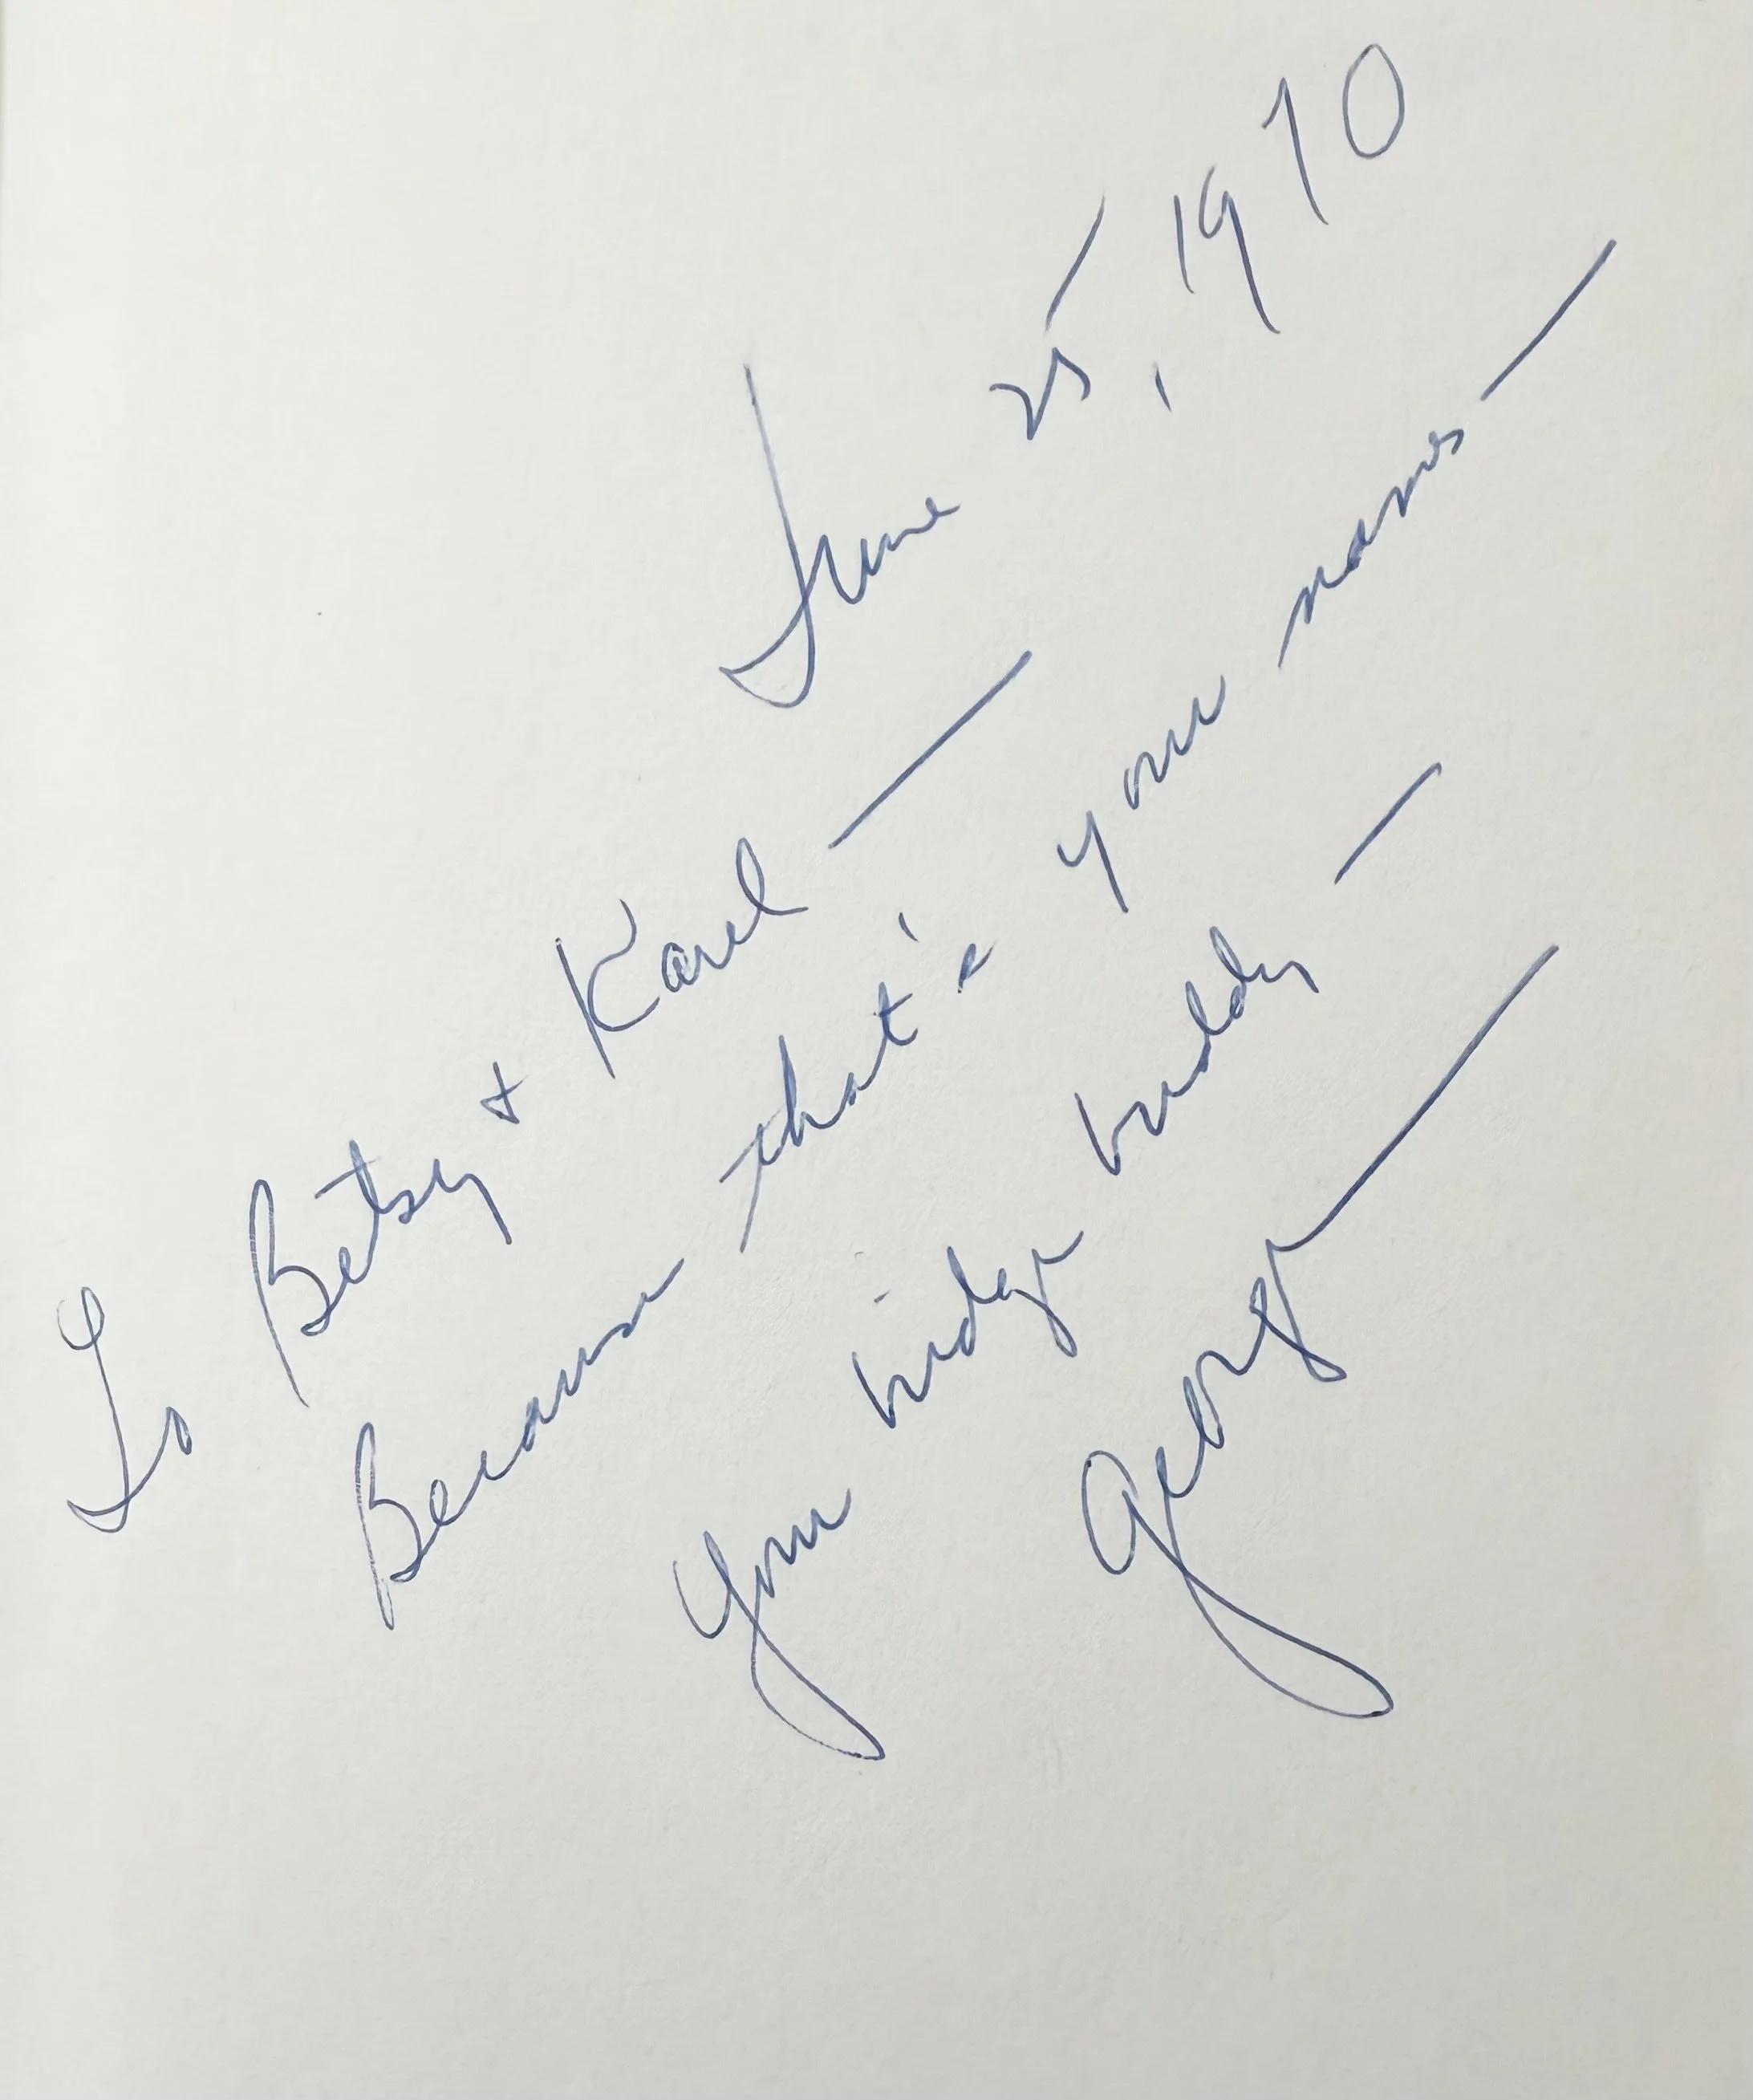 June 25, 1970
To Betsy & Karel —
Because that's your names —
Your bridge buddy —
George